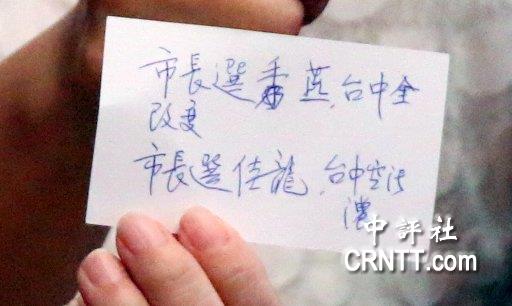 市長選秀燕,台中全
改变
市長選佳龍,台中空污
濃
中評社
CRNTT.com